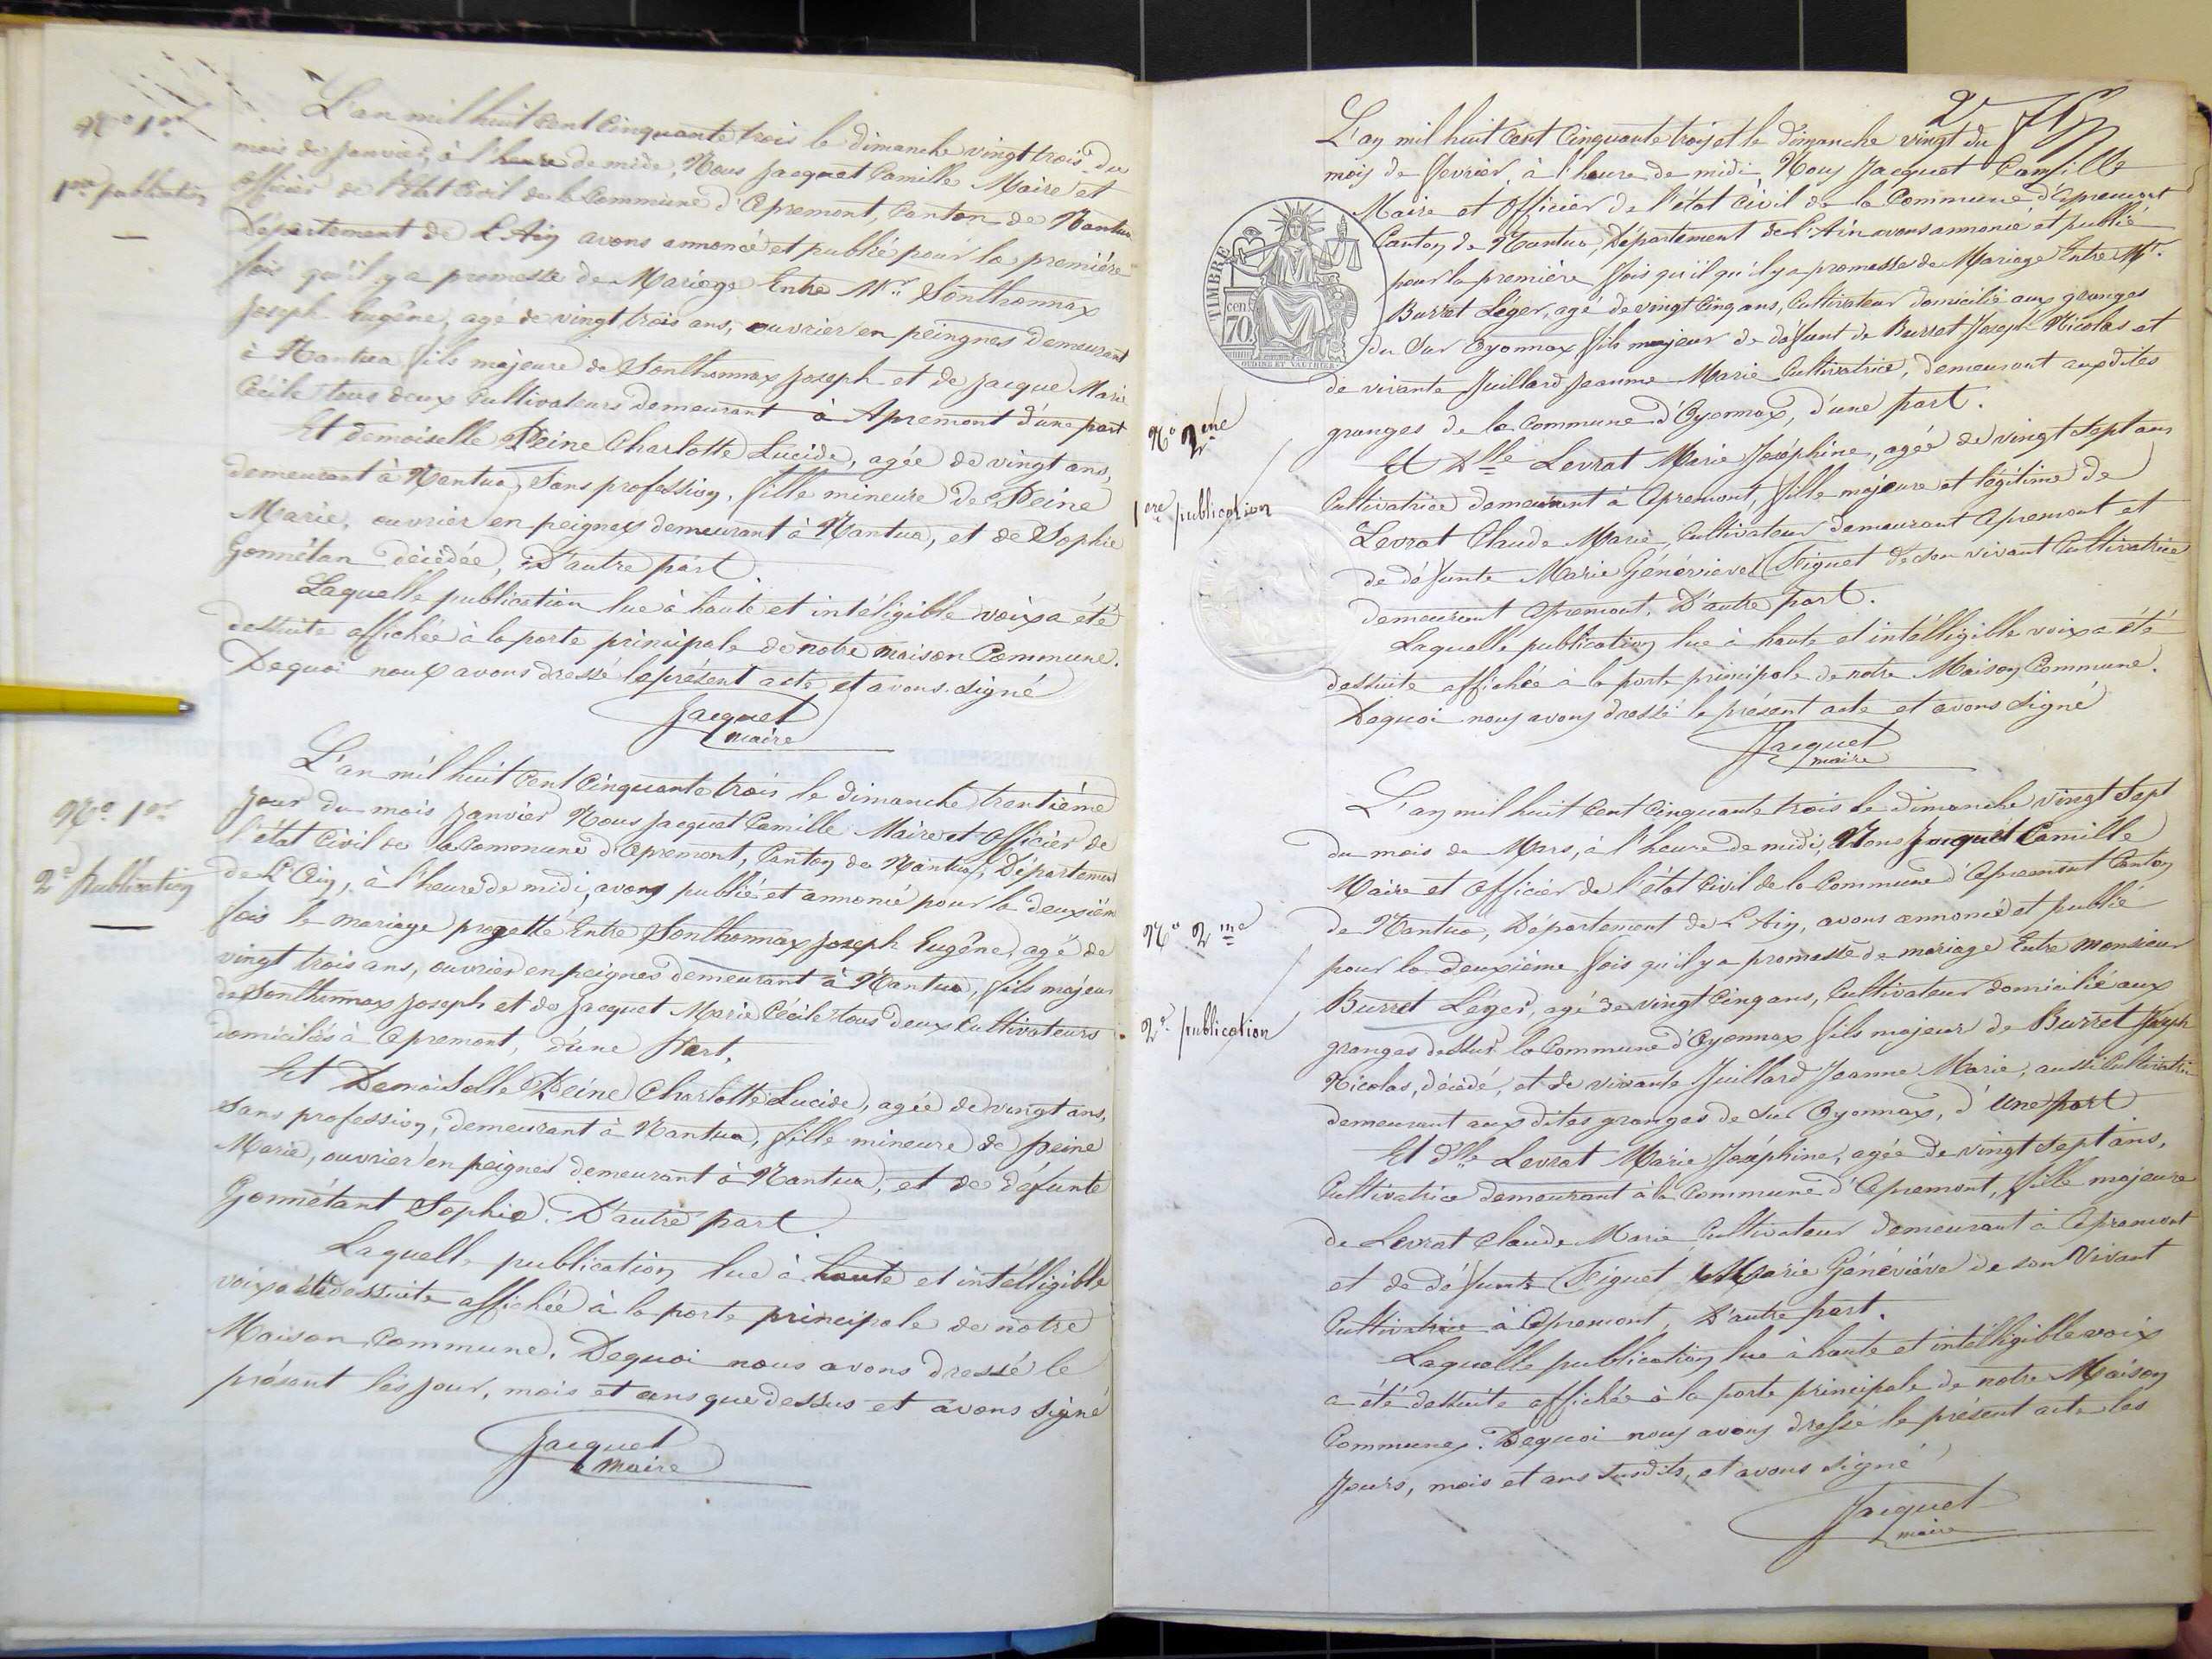 No 1er
1ère publication
L'an mil huit Cent Cinquante trois le dimanche vingt trois du
mois de Janvier, à l'heure de midi, Nous Jacquet Camille Maire et
officier de l'Etat Civil de la Commune d'Apremont, Canton de Nantua
Département de L'Ain avons annoncé et publié pour la première
fois qu'il y a promesse de Mariage Entre Mr. Sonthonnax
Joseph Eugène, agé de vingt trois ans, ouvrier en peingnes demeurant
à Nantua fils majeure de Sonthonnax Joseph et de Jacque Marie
Cécile tous deux Cultivateurs demeurant à Apremont d'une part
Et demoiselle Peine Charlotte Lucide, agée de vingt ans,
demeurant à Nantua, Sans profession, fille mineure de Peine
Marie, ouvrier en peignes demeurant à Nantua, et de Sophie
Gonnétan décédée, D'autre part.
Laquelle publication lue à haute et intéligible voix a été
dessuite affichée à la porte principale de notre maison Commune.
Dequoi nous avons dressé le présent acte et avons signé
Jacquet
maire
No 1er
2e publication
L'an mil huit Cent Cinquante trois le dimanche trentième
Jour du mois Janvier Nous Jacquet Camille Maire et officier de
l'état Civil de la Commune d'Apremont, Canton de Nantua, Département
de L'Ain, à l'heure de midi, avons publié et annoncé pour la deuxièm
fois le mariage progetté Entre Sonthonnax Joseph Eugène, agé de
vingt trois ans, ouvrier en peignes demeurant à Nantua, fils majeur
de Sonthonnax Joseph et de Jacquet Marie Cécile tous deux Cultivateurs
domiciliés à Apremont, d'une Part.
Et Demoiselle Peine Charlotte Lucide, agée de vingt ans,
Sans profession, demeurant à Nantua, fille mineure de peine
Marie, ouvrier en peignes demeurant à Nantua, et de défunte
Gonnétant Sophie. D'autre part.
Laquelle publication lue à haute et intélligible
voix a été dessuite affichée à la porte principale de notre
Maison Commune. Dequoi nous avons dressé le
présent les jour, mois et ans que dessus et avons signé
Jacquet
maire
2
TIMBRE
cen
70
OUDINÉ ET VAUTHIER
No 2me
1ere publication
L'an mil huit Cent Cinquante trois et le Dimanche vingt du
mois de fevrier, à l'heure de midi Nous Jacquet Camille
Maire et Officier de l'état Civil de la Commune d'Apremont
Canton de Nantua, Département de L'Ain avons annoncé et publié
pour la première fois qu'il qu'il y a promesse de Mariage Entre Mr.
Burret Léger, agé de vingt Cinq ans, Cultivateur domicilié aux granges
du Sur Oyonnax fils majeur de défunt de Burret Joseph Nicolas et
de vivante Juillard Jeanne Marie Cultivatrice, demeurant auxdites
granges de la Commune d'Oyonnax, d'une part.
Et Dlle Levrat Marie Joséphine, agée de vingt Sept ans
Cultivatrice demeurant à Apremont, fille majeure et légitime de
Levrat Claude Marie, Cultivateur demeurant Apremont et
de défunte Marie Généviève Figuet de son vivant Cultivatrice
demeurant Apremont, D'autre part.
Laquelle publication lue à haute et intélligible voix a été
dessuite affichée à la porte principale de notre Maison Commune.
Dequoi nous avons dressé le présent acte et avons signé
Jacquet
maire
No 2me
2e publication
L'an mil huit Cent Cinquante trois le Dimanche vingt Sept
du mois de Mars, à l'heure de midi, Nous Jacquet Camille
Maire et officier de l'état Civil de la Commune d'Apremont Canton
de Nantua, Département de L'Ain, avons annoncé et publié
pour la deuxième fois qu'il y a promesse de mariage Entre Monsieur
Burret Léger, agé de vingt Cinq ans, Cultivateur domicilié aux
granges dessur la Commune d'Oyonnax fils majeur de Burret Joseph
Nicolas, décédé, et de vivante Juillard Jeanne Marie, aussi Cultivatrice
demeurant aux dites granges de Sur Oyonnax, d'une part
Et Dlle Levrat Marie Joséphine, agée de vingt Sept ans,
Cultivatrice demeurant à la Commune d'Apremont, fille majeure
de Levrat Claude Marie Cultivateur demeurant à Apremont
et de défunte Figuet Marie Généviève de son Vivant
Cultivatrice à Apremont, D'autre part.
Laquelle publication lue à haute et intélligible voix
a été dessuite affichée à la porte principale de notre Maison
Commune. Dequoi nous avons dressé le présent acte les
Jours, mois et ans susdits, et avons signé
Jacquet
maire